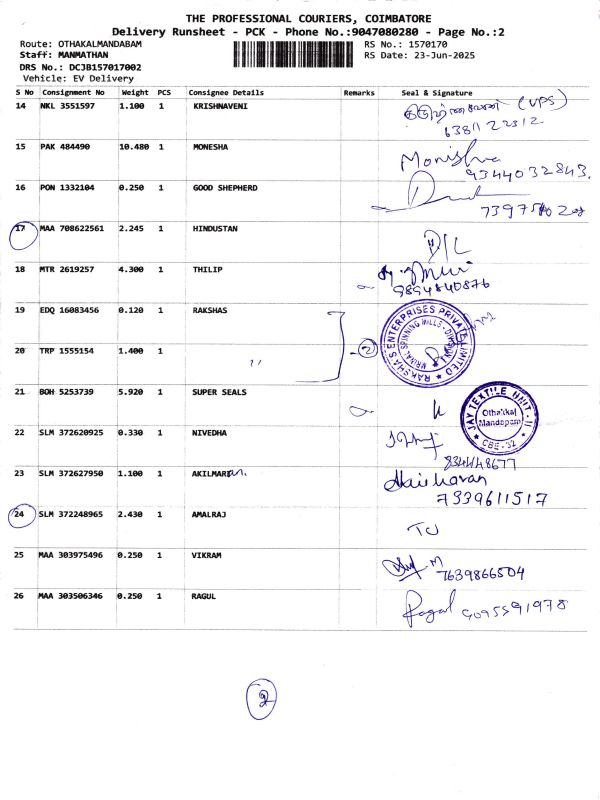 THE PROFESSIONAL COURIERS, COIMBATORE
Delivery Runsheet - PCK - Phone No.:9047080280 - Page No.:2
Route: OTHAKALMANDABAM RS No.: 1570170
Staff: MANMATHAN RS Date: 23-Jun-2025
DRS No.: DCJB157017002
Vehicle: EV Delivery
S No Consignment No Weight PCS Consignee Details Remarks Seal & Signature
14 NKL 3551597 1.100 1 KRISHNAVENI (VPS)
6381122312
15 PAK 484490 10.480 1 MONESHA Monisha
9344032843.
16 PON 1332104 0.250 1 GOOD SHEPHERD
17 MAA 708622561 2.245 1 HINDUSTAN D/L
18 MTR 2619257 4.300 1 THILIP
9894840876
19 EDQ 16083456 0.120 1 RAKSHAS
RAKSHA'S ENTERPRISES PRIVATE LIMITED
20 TRP 1555154 1.400 1 " 2
21 BOH 5253739 5.920 1 SUPER SEALS
JAY TEXTILE UNIT - II
Othakkal
Mandapam
CBE - 32
22 SLM 372620925 0.330 1 NIVEDHA
8344148677
23 SLM 372627950 1.100 1 AKILMARan. Haiharan
7339611517
24 SLM 372248965 2.430 1 AMALRAJ TU
25 MAA 303975496 0.250 1 VIKRAM
7639866504
26 MAA 303506346 0.250 1 RAGUL Ragul 9095591978
2